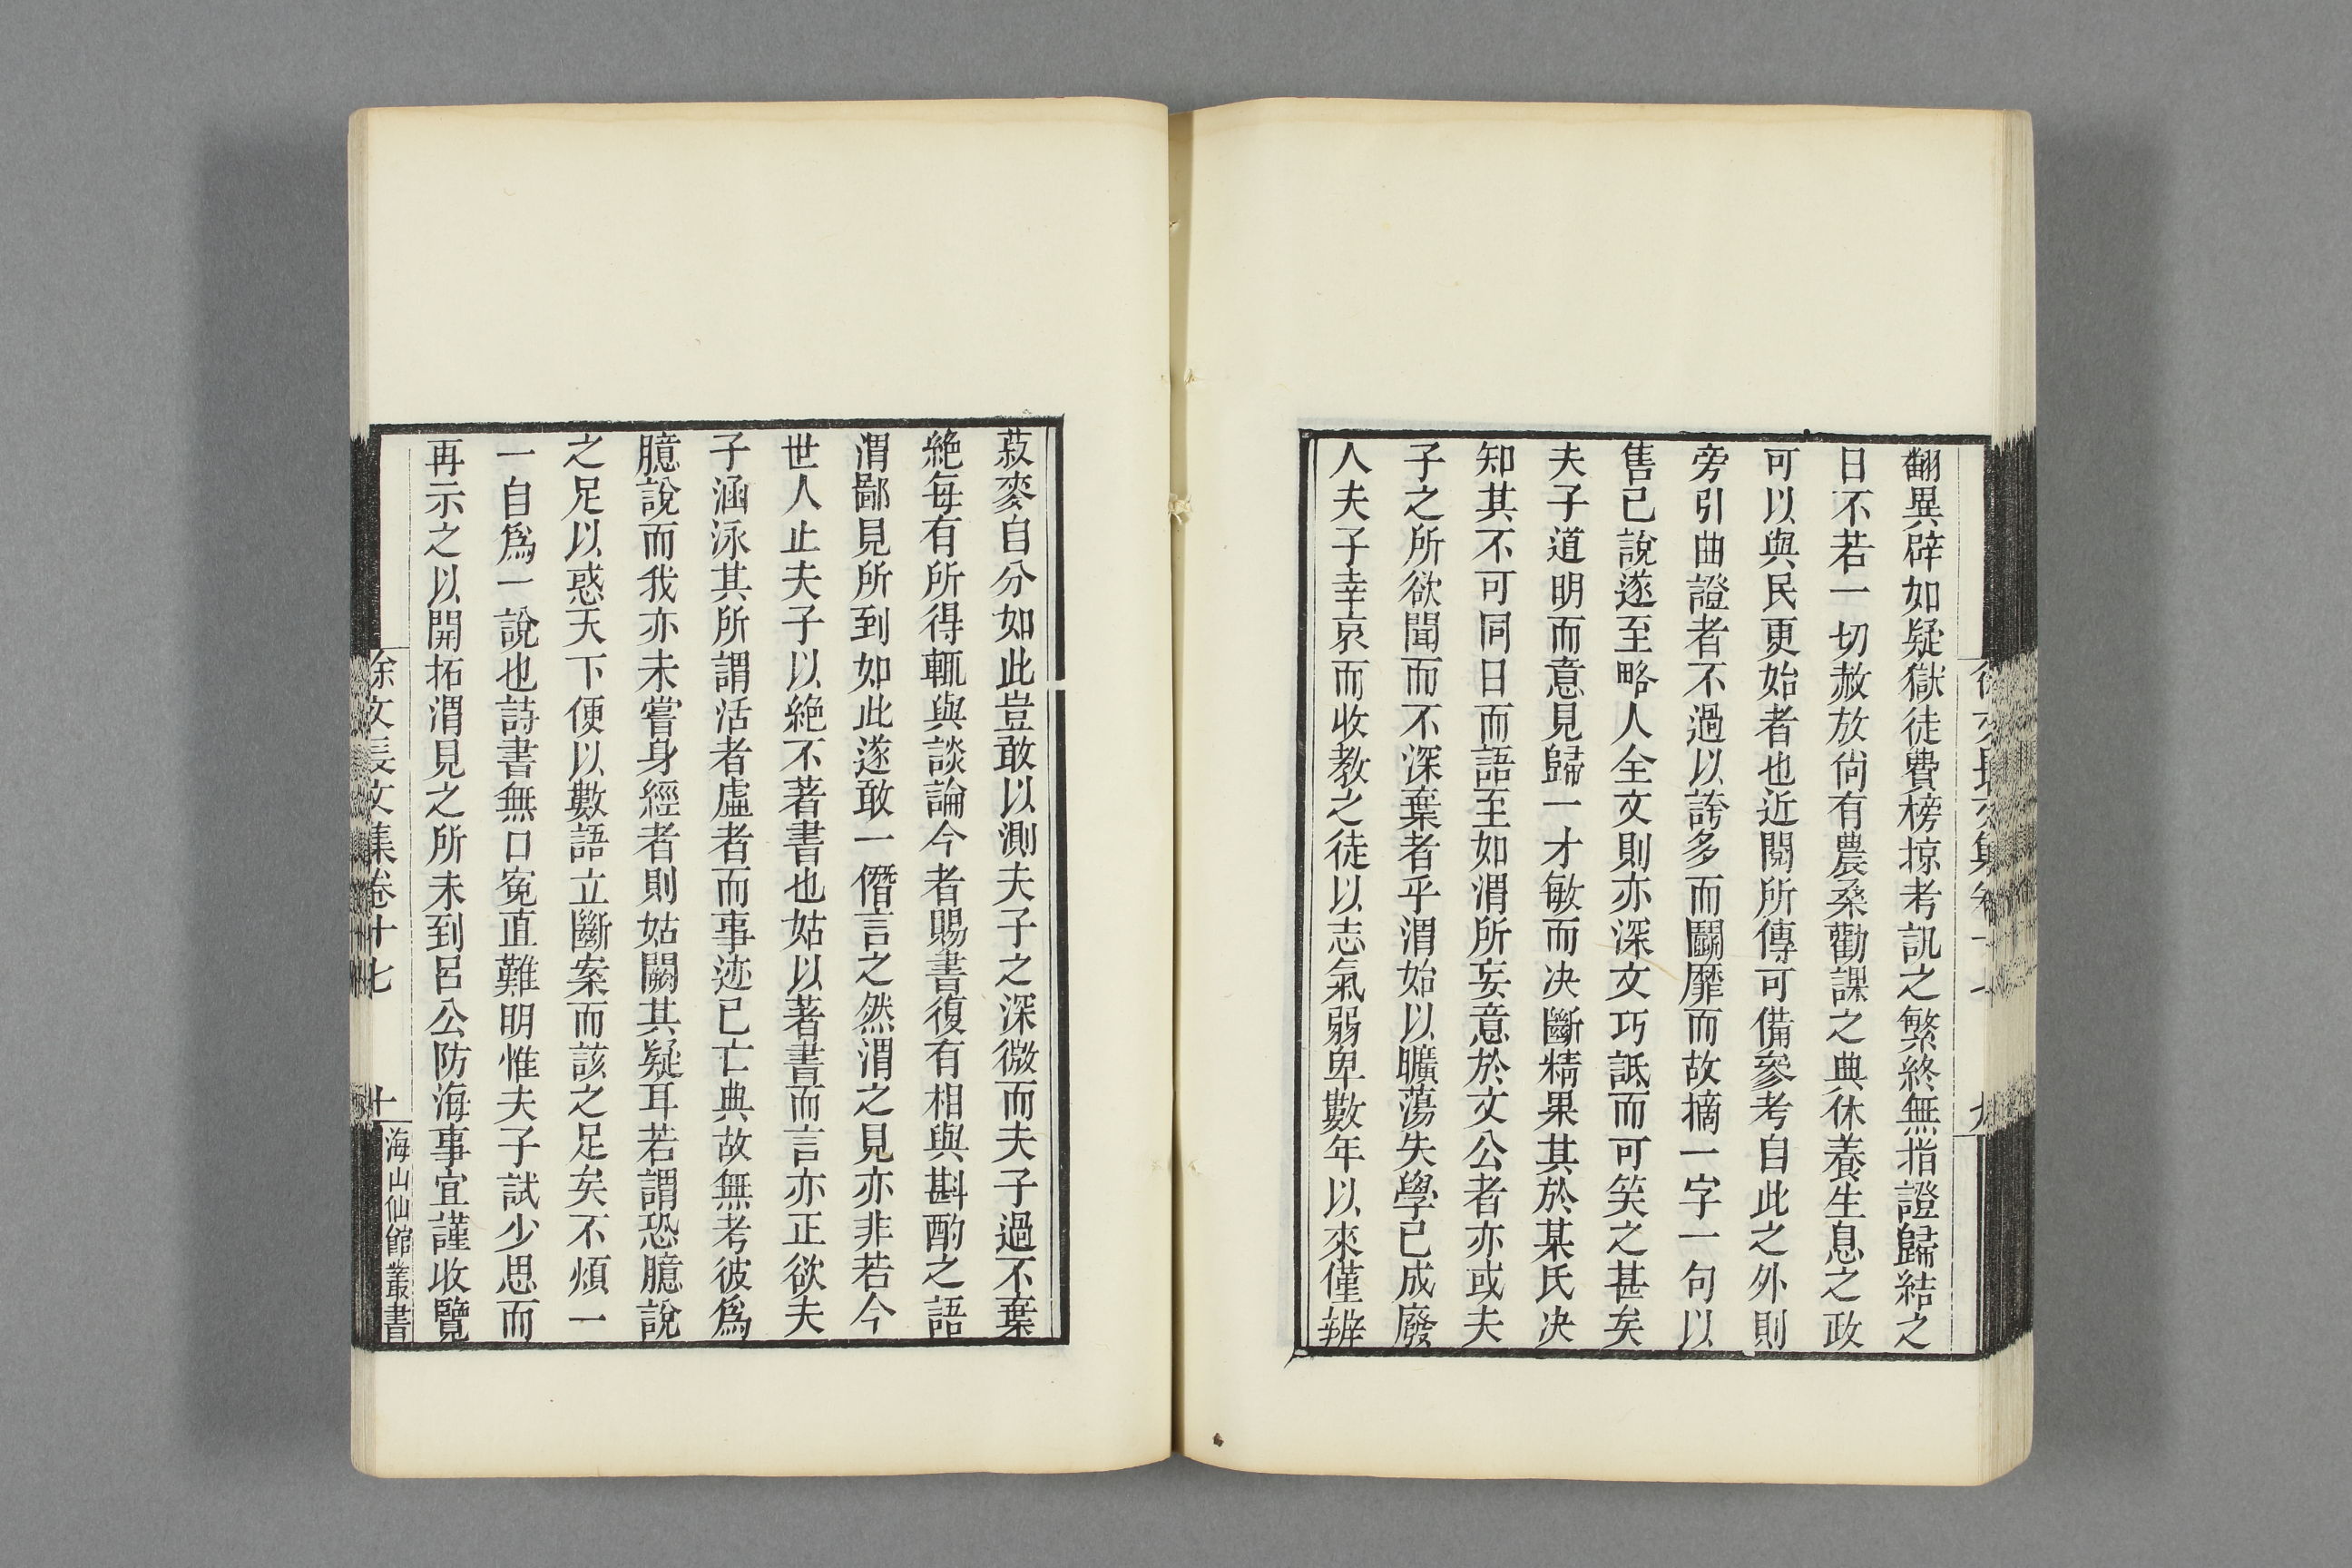 翻異辟如疑獄徒費榜掠考訊之繁終無指證歸結之
日不若一切赦放尙有農桑勸課之典休養生息之政
可以與民更始者也近閱所傳可備參考自此之外則
旁引曲證者不過以誇多而鬭靡而故摘一字一句以
售已說遂至略人全文則亦深文巧詆而可笑之甚矣
夫子道明而意見歸一才敏而决斷精果其於某氏决
知其不可同日而語至如渭所妄意於文公者亦或夫
子之所欲聞而不深棄者乎渭始以曠蕩失學已成廢
人夫子幸哀而收教之徒以志氣弱卑數年以來僅辨
菽麥自分如此豈敢以測夫子之深微而夫子過不棄
絶每有所得輒與談論今者賜書復有相與斟酌之語
渭鄙見所到如此遂敢一僭言之然渭之見亦非若今
世人止夫子以絶不著書也姑以著書而言亦正欲夫
子涵泳其所謂活者虛者而事迹已亡典故無考彼爲
臆說而我亦未嘗身經者則姑闕其疑耳若謂恐臆說
之足以惑天下便以數語立斷案而該之足矣不煩一
一自爲一說也詩書無口寃直難明惟夫子試少思而
再示之以開拓渭見之所未到呂公防海事宜謹收覽
徐文長文集卷十七 十 海山仙館叢書